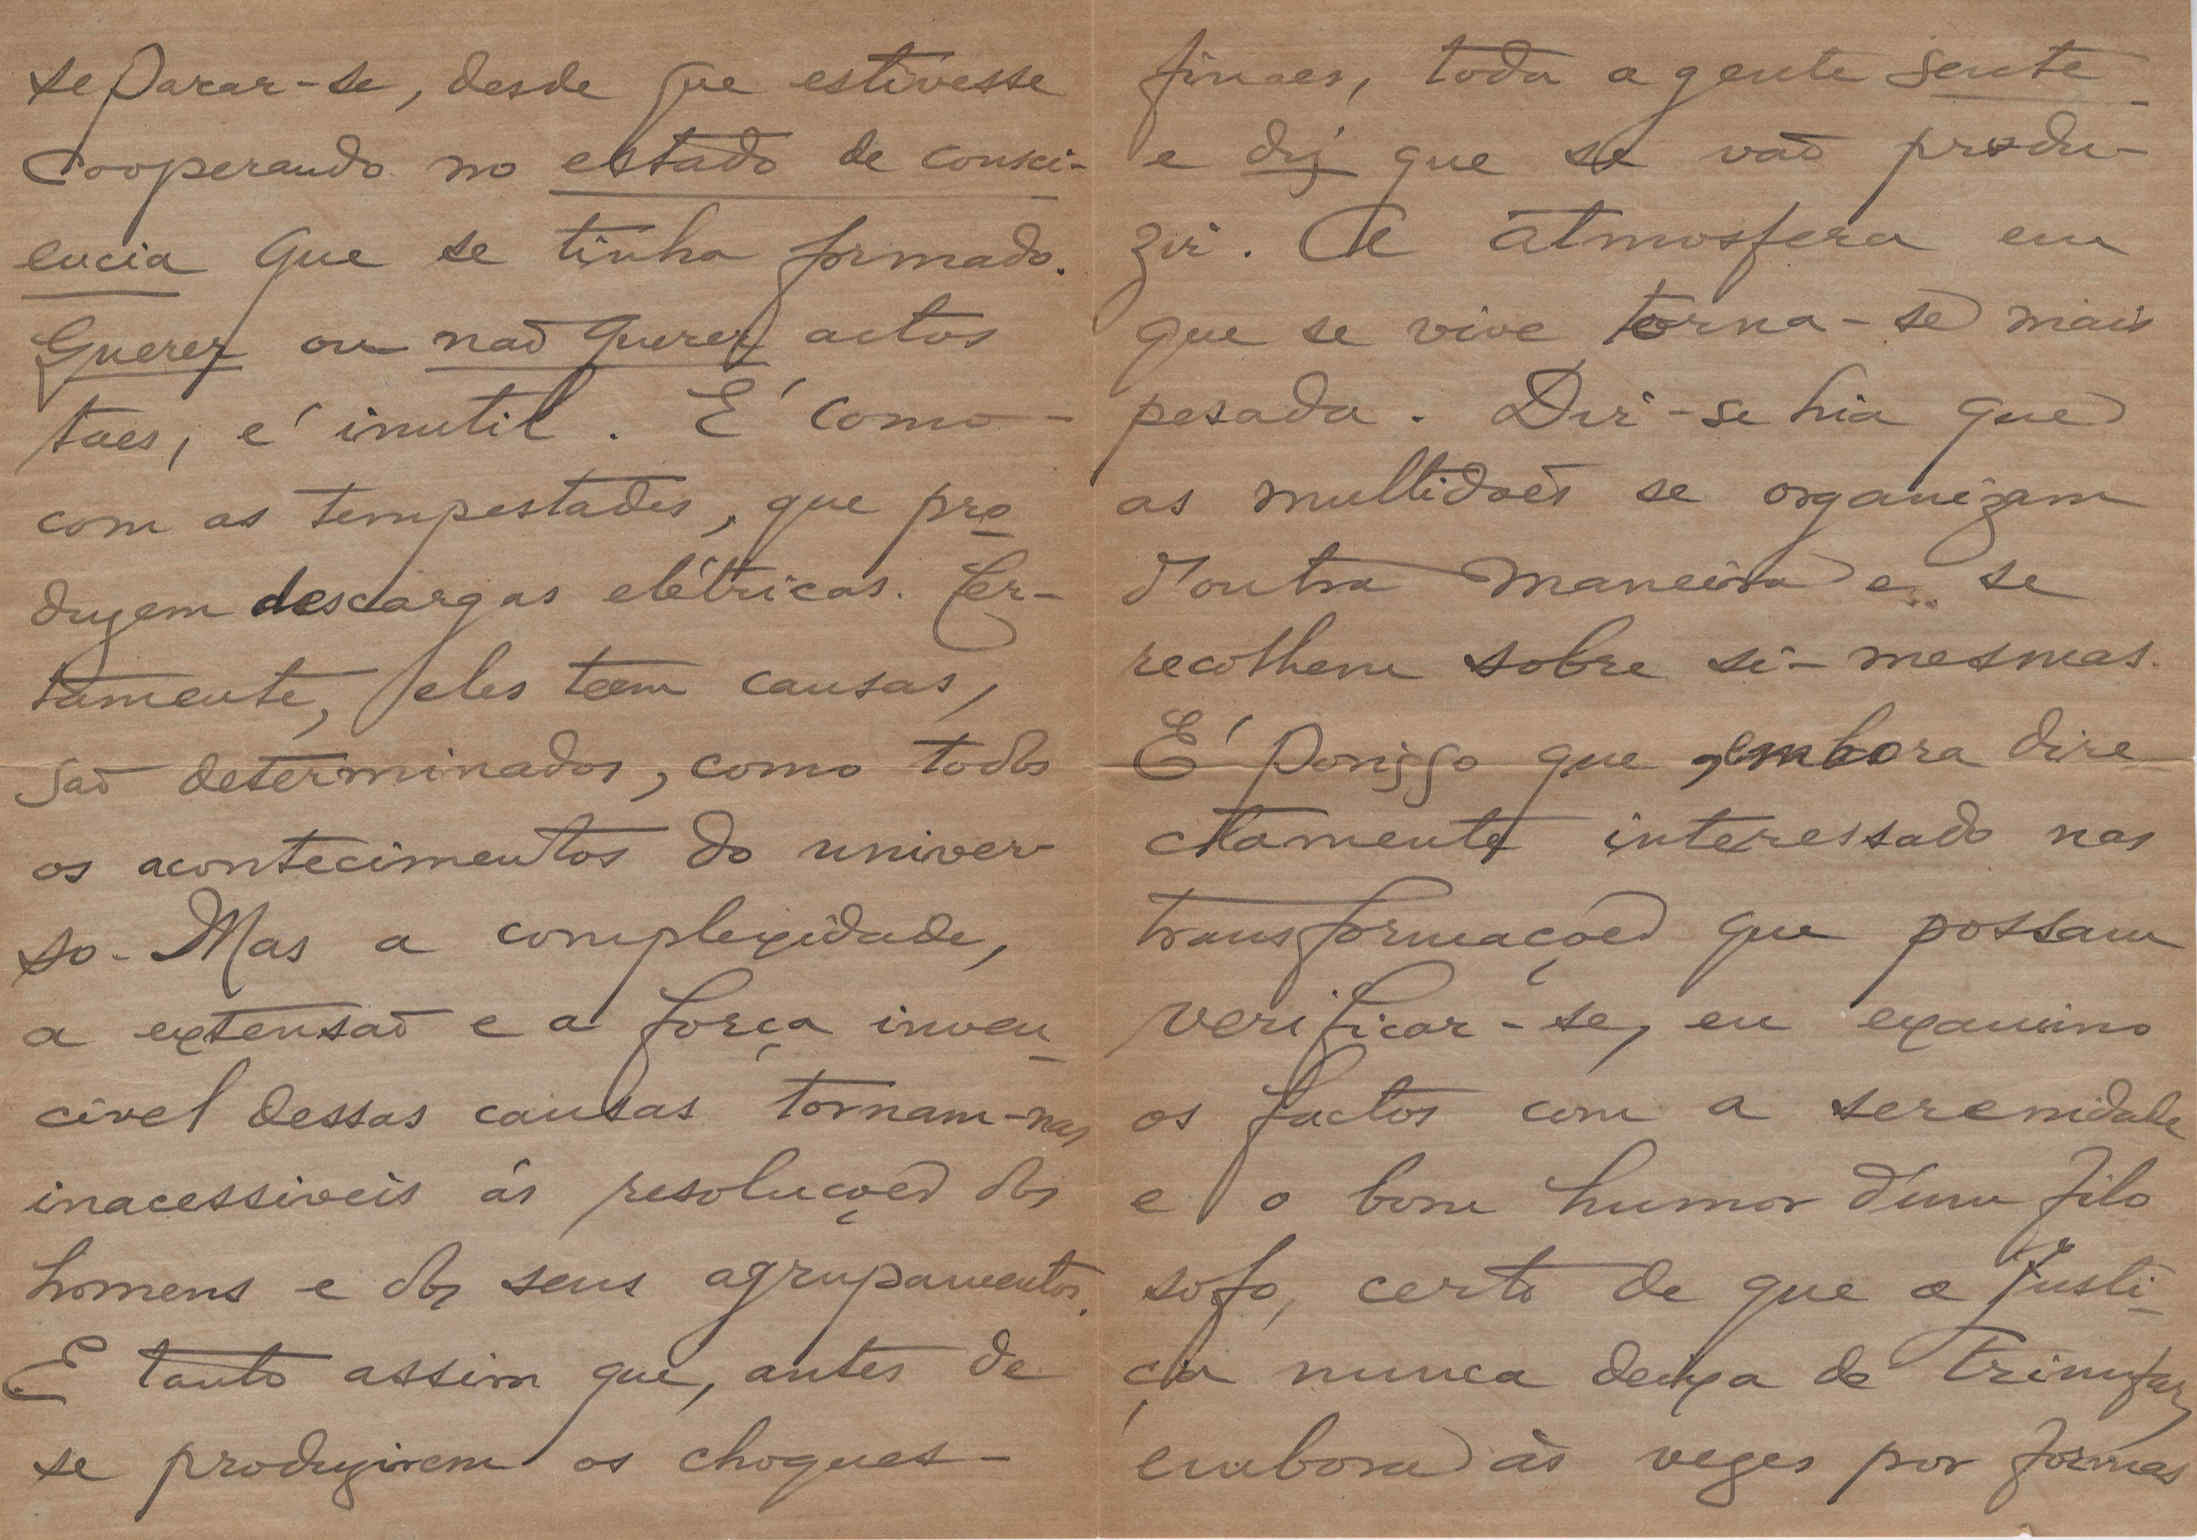 separar-se, desde que estivesse
cooperando no estado de consci-
encia que se tinha formado.
Querer ou não querer actos
taes, é inutil. É como
com as tempestades, que pro
duzem descargas elétricas. Cer-
tamente, eles teem causas,
são determinados, como todos
os acontecimentos do univer-
so. Mas a complexidade,
a extensão e a força inven
civel dessas causas tornam-nas
inacessiveis ás resoluções dos
homens e dos seus agrupamentos.
E tanto assim que, antes de
se produzirem os choques
finaes, toda a gente sente
e diz que se vão produ-
zir. A atmosfera em
que se vive torna-se mais
pesada. Dir-se hia que
as multidões se organizam
d'outra maneira e se
recolhem sobre si-mesmas.
É porisso que, embora dire
ctamente interessado nas
transformações que possam
verificar-se, eu examino
os factos com a serenidade
e o bom humor d'um filo
sofo, certo de que a justi
ça nunca deixa de triunfar,
embora ás vezes por formas